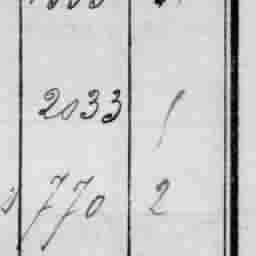 2033 1
770 2